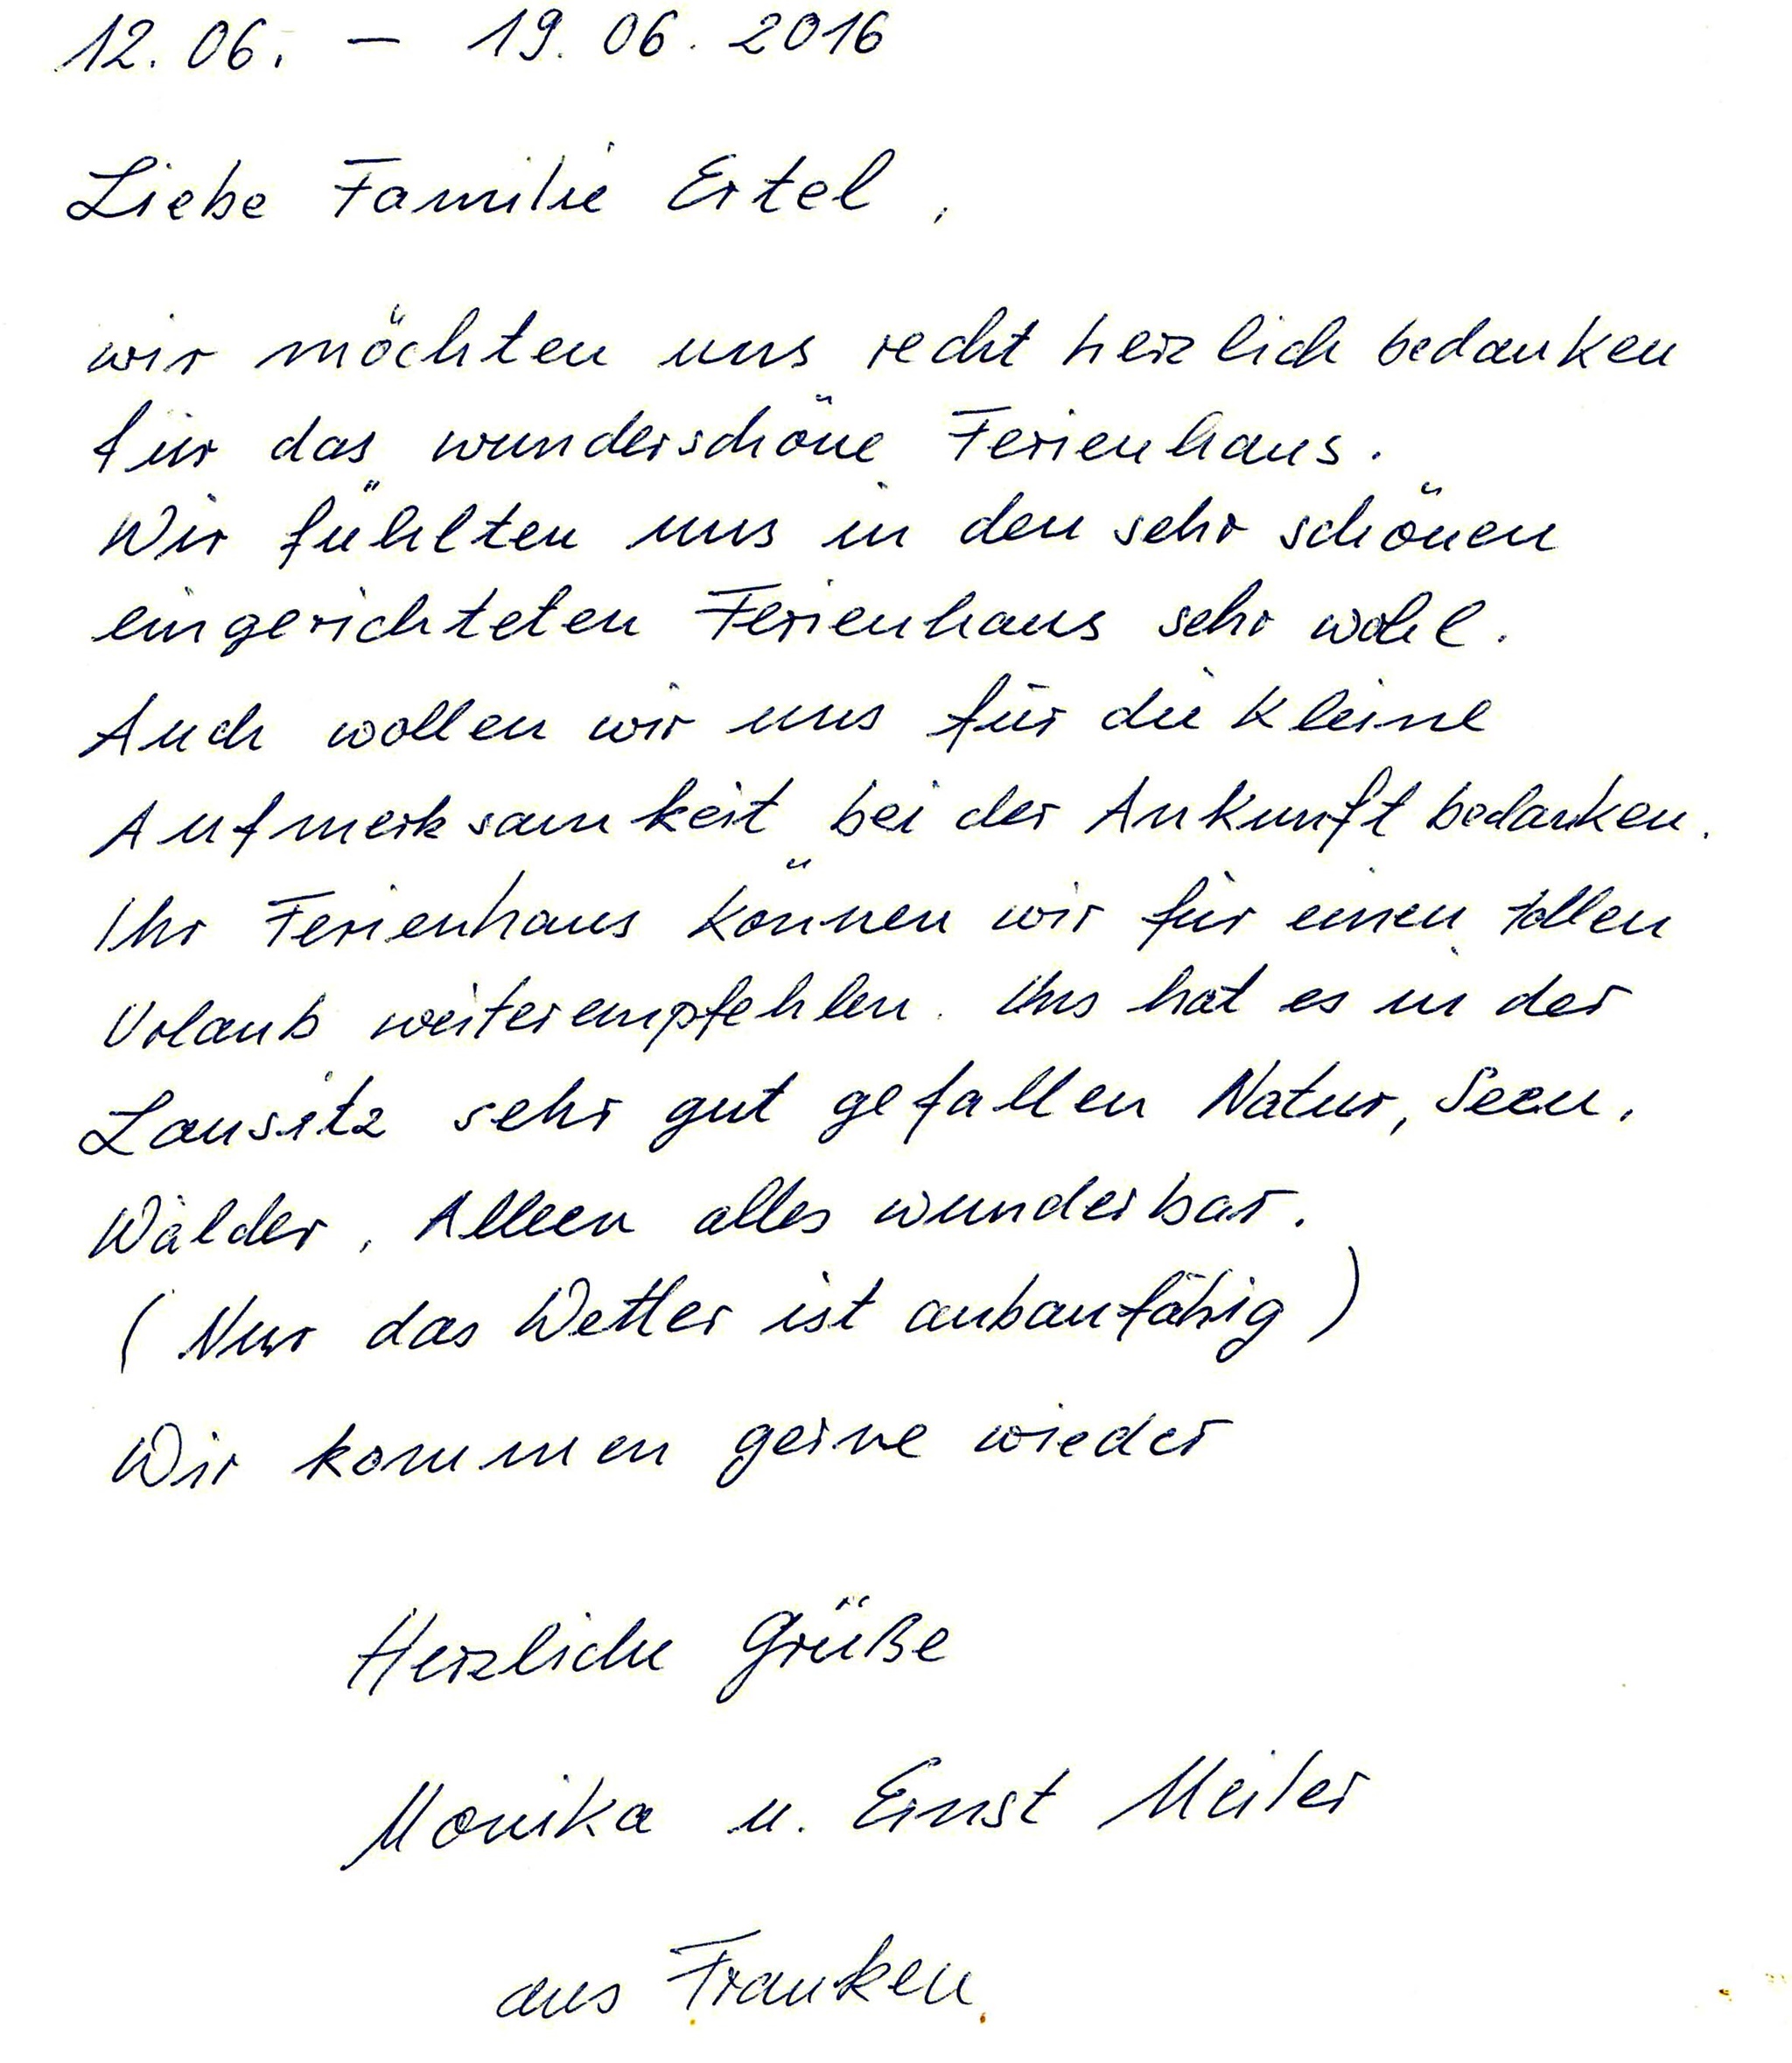 12.06. – 19.06.2016
Liebe Familie Ertel,
wir möchten uns recht herzlich bedanken
für das wunderschöne Ferienhaus.
Wir fühlten uns in den sehr schönen
eingerichteten Ferienhaus sehr wohl.
Auch wollen wir uns für die kleine
Aufmerksamkeit bei der Ankunft bedanken.
Ihr Ferienhaus können wir für einen tollen
Urlaub weiterempfehlen. Uns hat es in der
Lausitz sehr gut gefallen Natur, Seen,
Wälder, Alleen alles wunderbar.
(Nur das Wetter ist aubaufähig)
Wir kommen gerne wieder
Herzliche Grüße
Monika u. Ernst Meiler
aus Franken